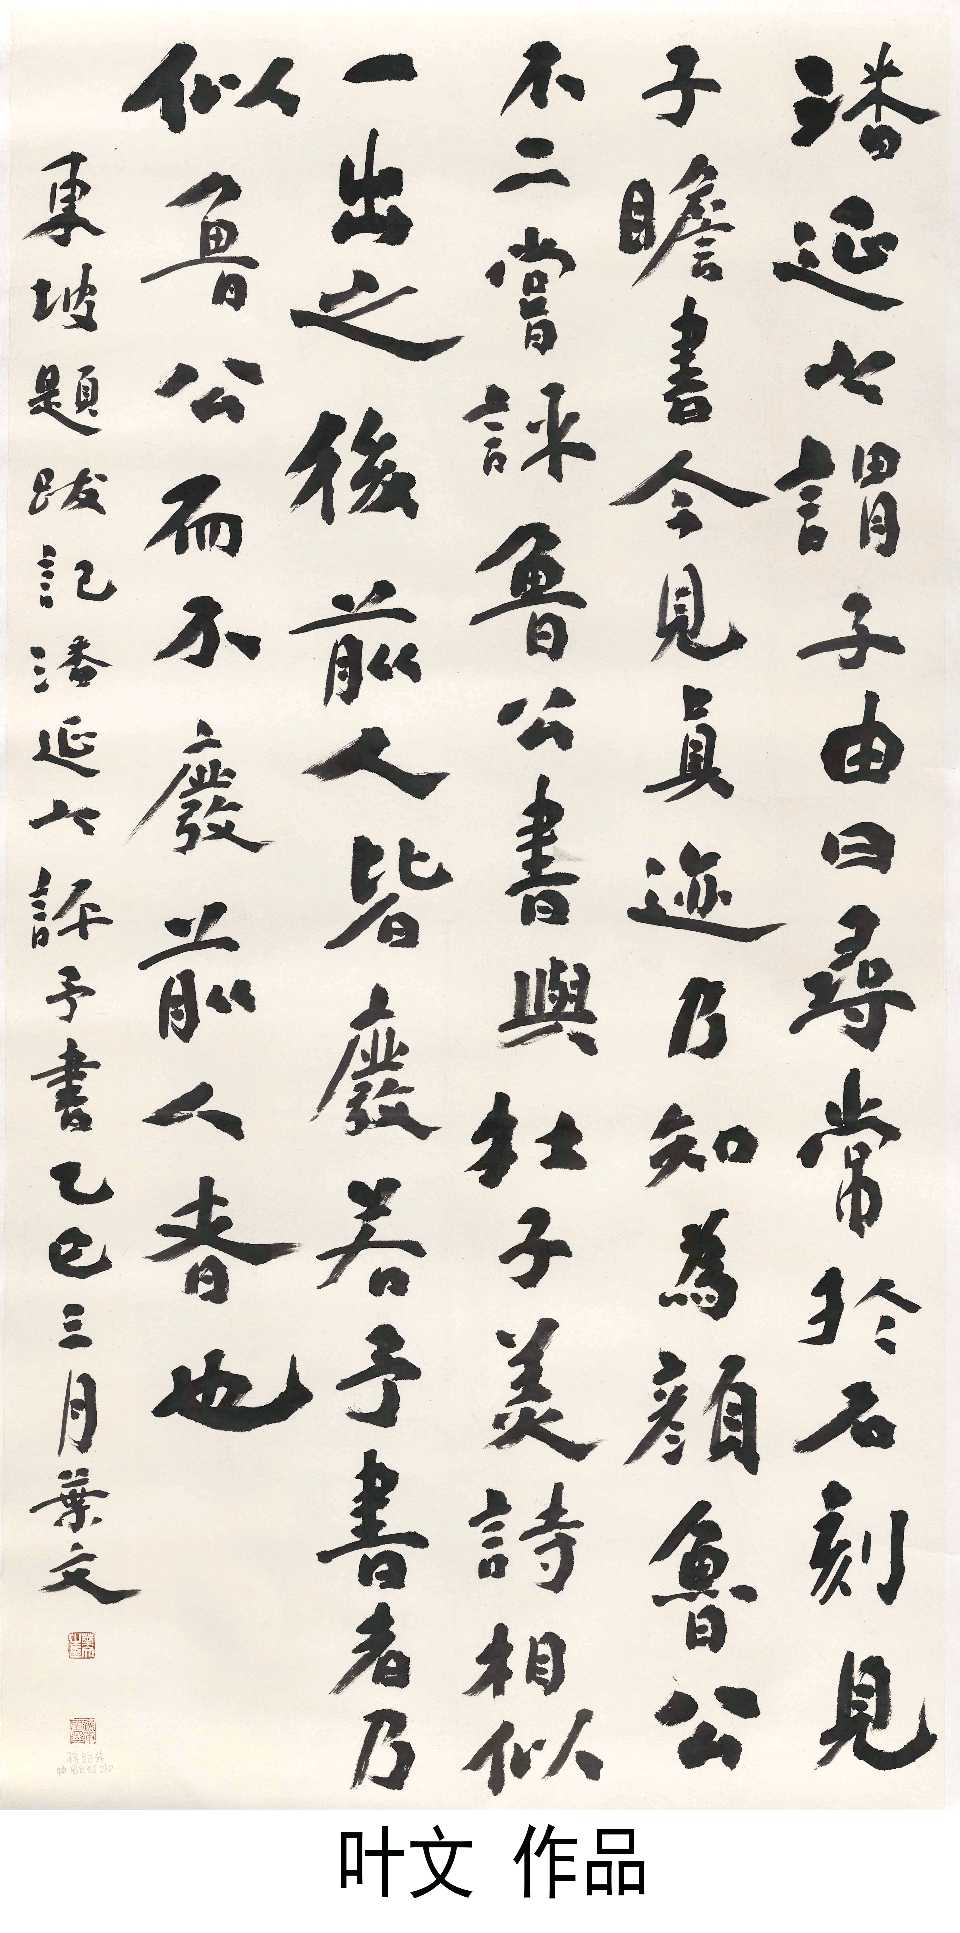 潘延之謂子由曰尋常於石刻見
子瞻書今見真迹乃知為顔魯公
不二嘗評魯公書與杜子美詩相似
一出之後前人皆廢若予書者乃
似魯公而不廢前人者也
東坡題跋記潘延之評予書乙巳三月葉文
叶文 作品